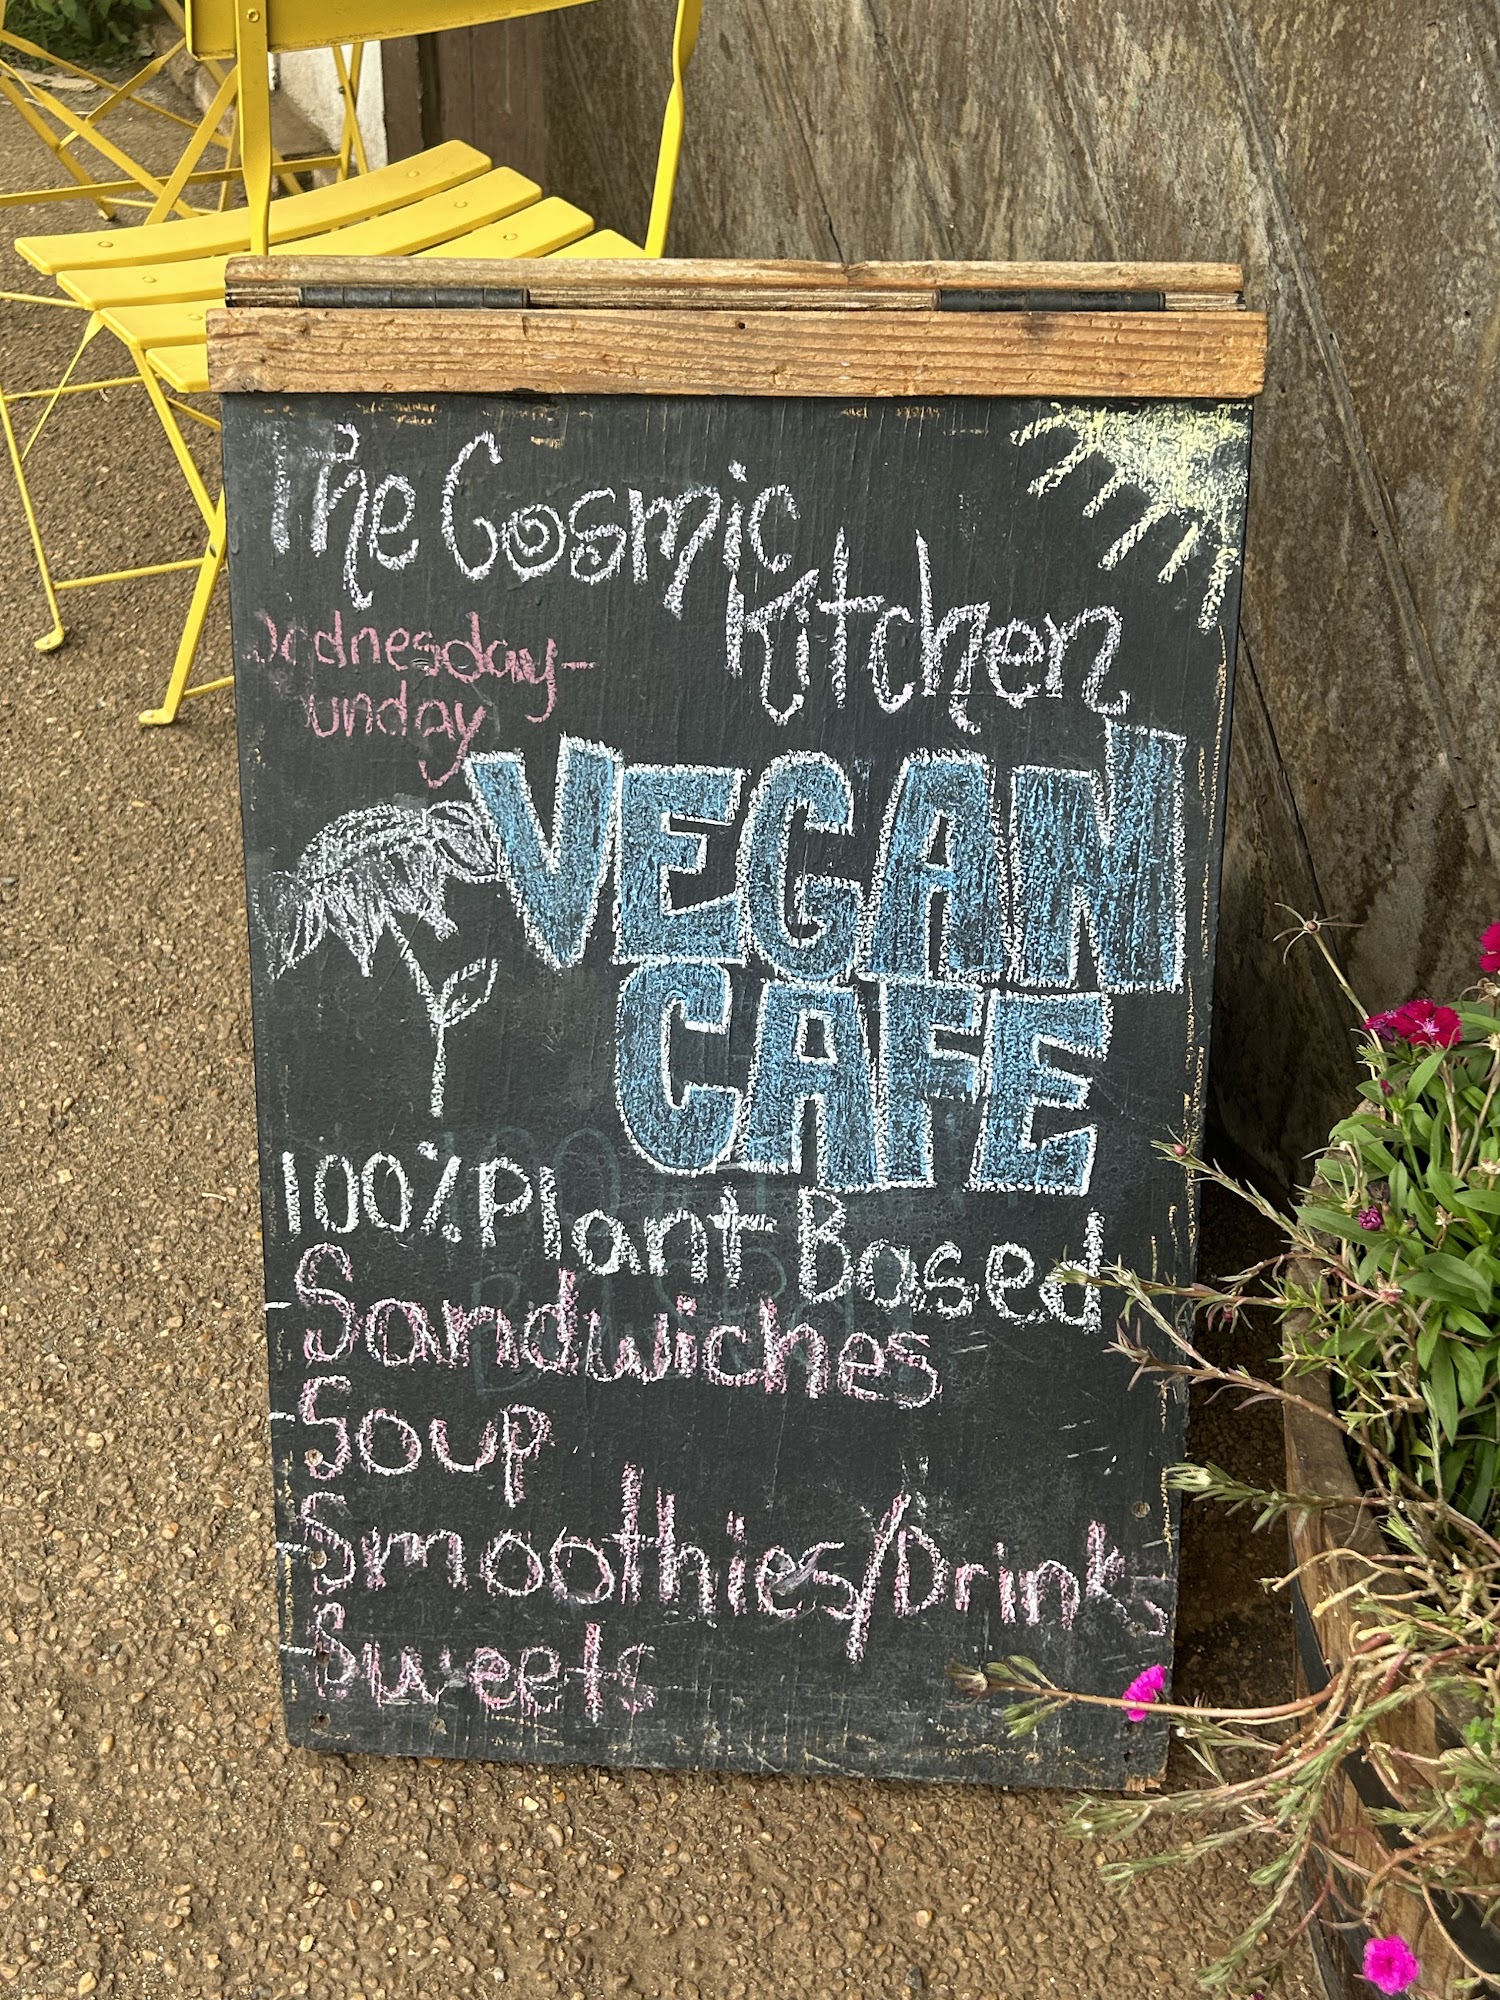 The Cosmic
Kitchen
Wednesday-
Sunday
VEGAN
CAFE
100% Plant Based
- Sandwiches
- Soup
- Smoothies/Drinks
- Sweets